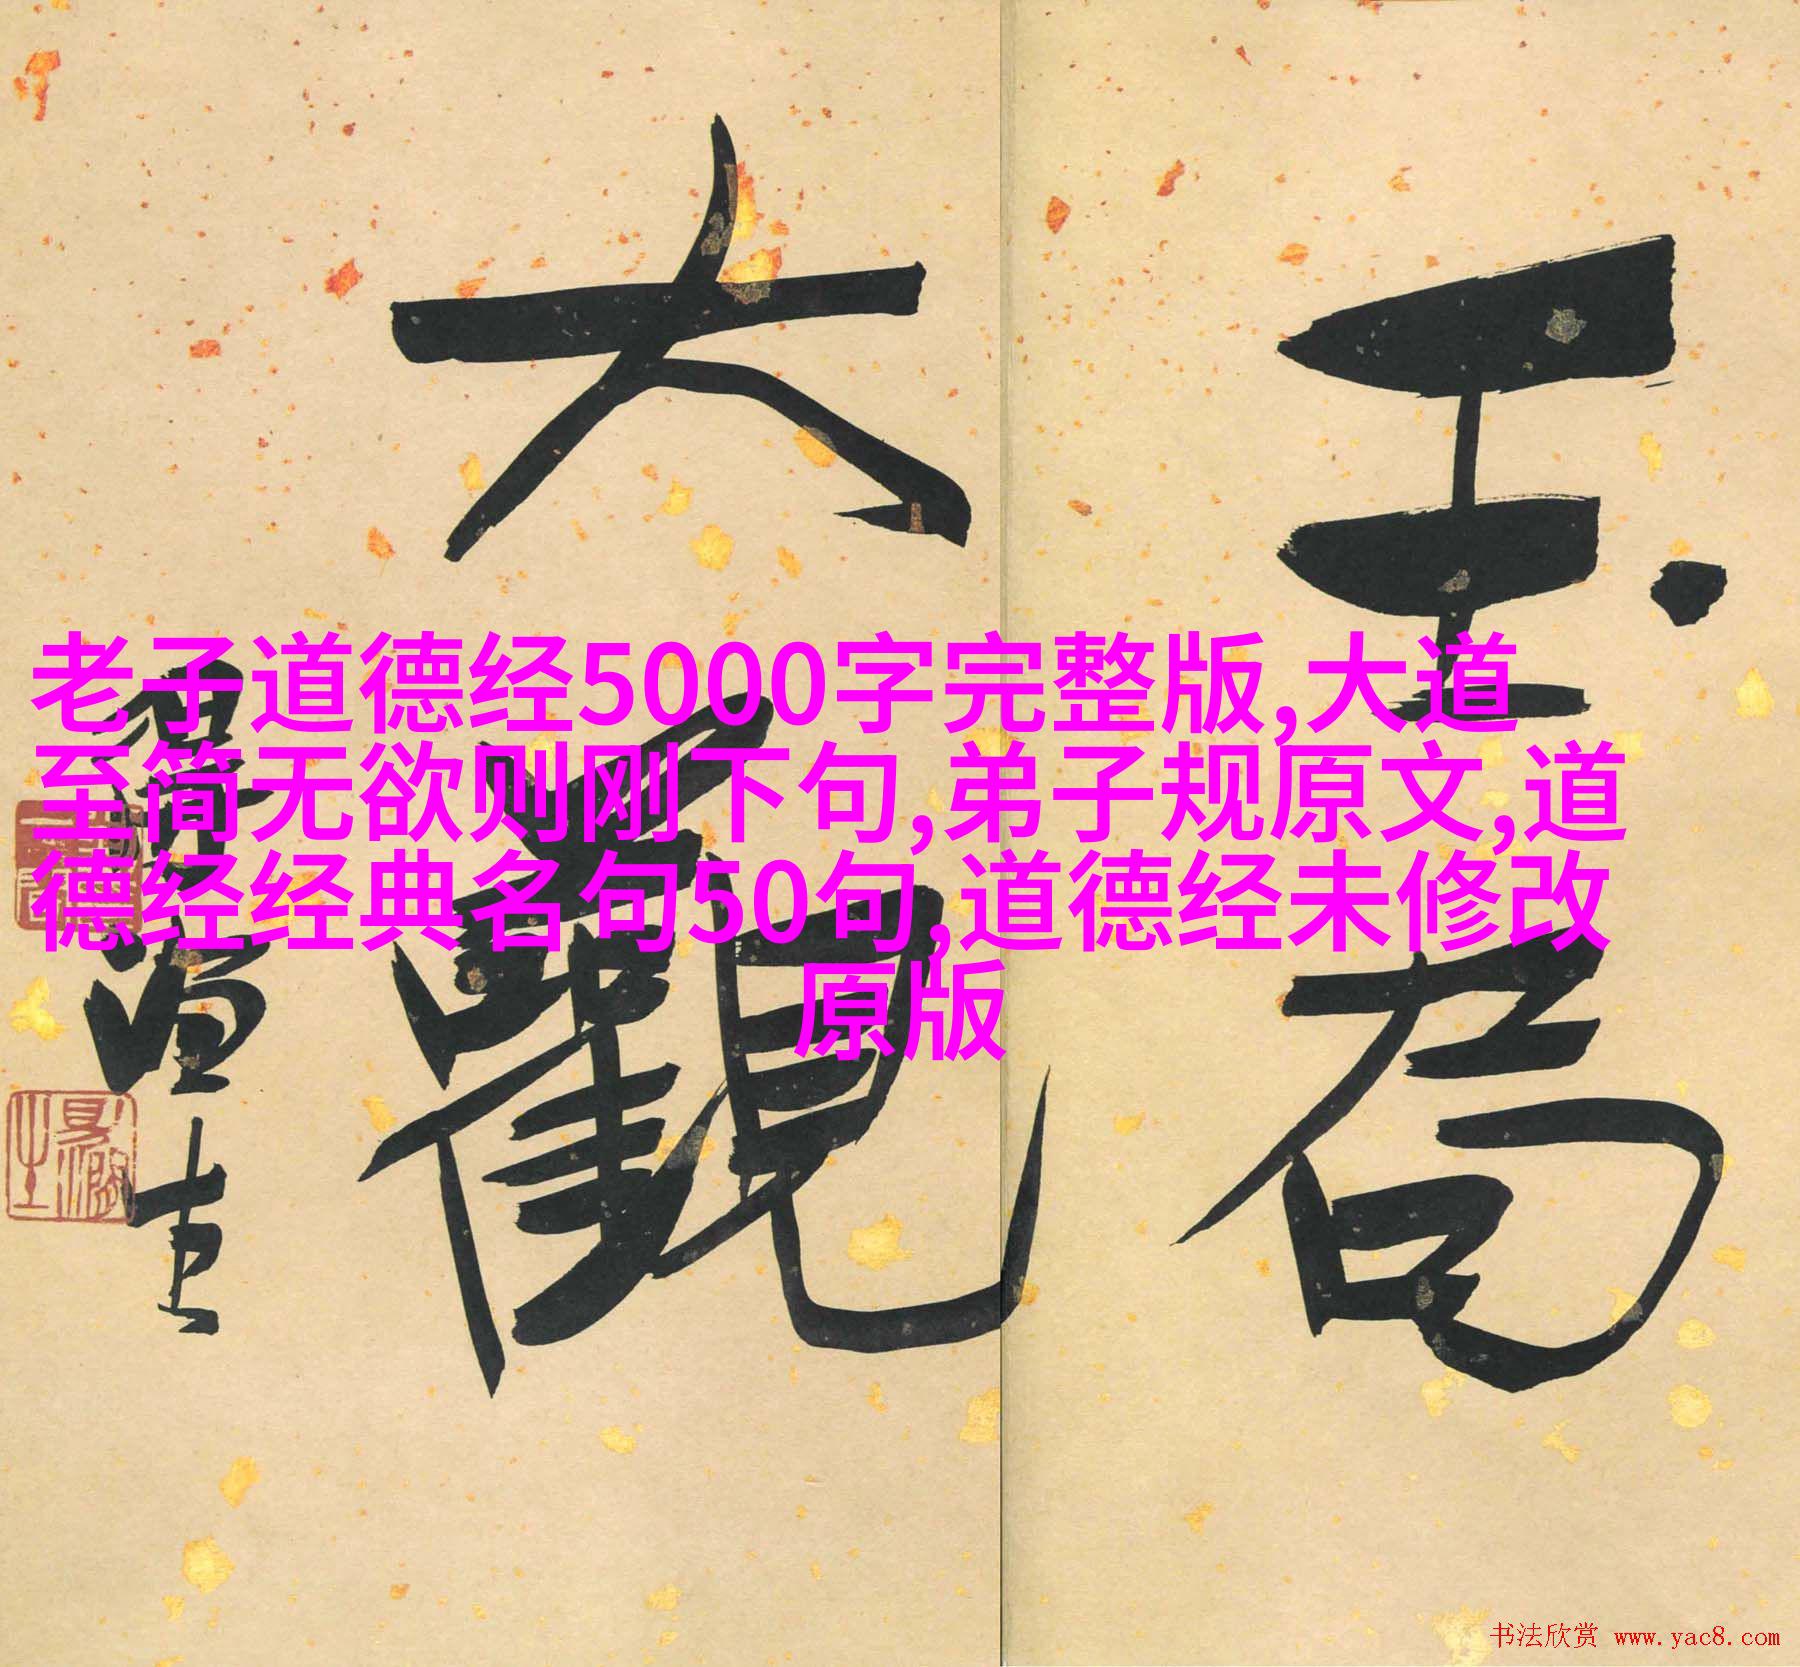 老子道德经5000字完整版,大道
至简无欲则刚下句,弟子规原文,道
德经经典名句50句,道德经未修改
原版
玉局
大觀
書法欣赏 www.yac8.com